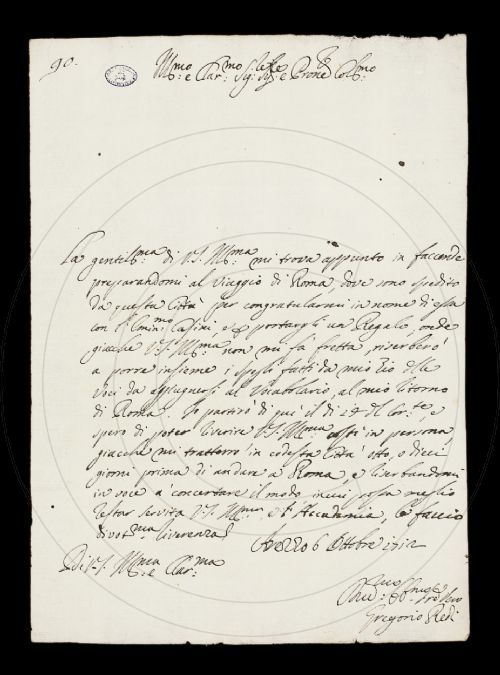 90.
Ill:mo e Clar:mo Sig: Sig:e e Prone Col:mo
La gentil:ma di V.S. Ill:ma mi trova appunto in faccende
preparandomi al viaggio di Roma, dove sono spedito
da questa Città per congratularmi in nome di essa
con l'Emin:mo Casini, e portargli un Regalo, onde
giacchè V.S. Ill:ma non mi fà fretta, riserberò
a porre insieme i spogli fatti da mio Zio delle
Voci da aggiugnersi al Vocabolario, al mio ritorno
di Roma. Io partirò di quì il dì del Cor:te, e
spero di poter riverire V.S. Ill:ma costì in persona,
giacchè mi tratterrò in codesta Città otto, o dieci
giorni prima di andare a Roma, e riserbandomi
in voce a concertare il modo in cui possa meglio
restar servita V.S. Ill:ma e l'Accademia, le faccio
divot:ma riverenza
Arezzo 6 Ottobre 1712
Di V.S. Ill:ma e Clar:ma
Gregorio Redi